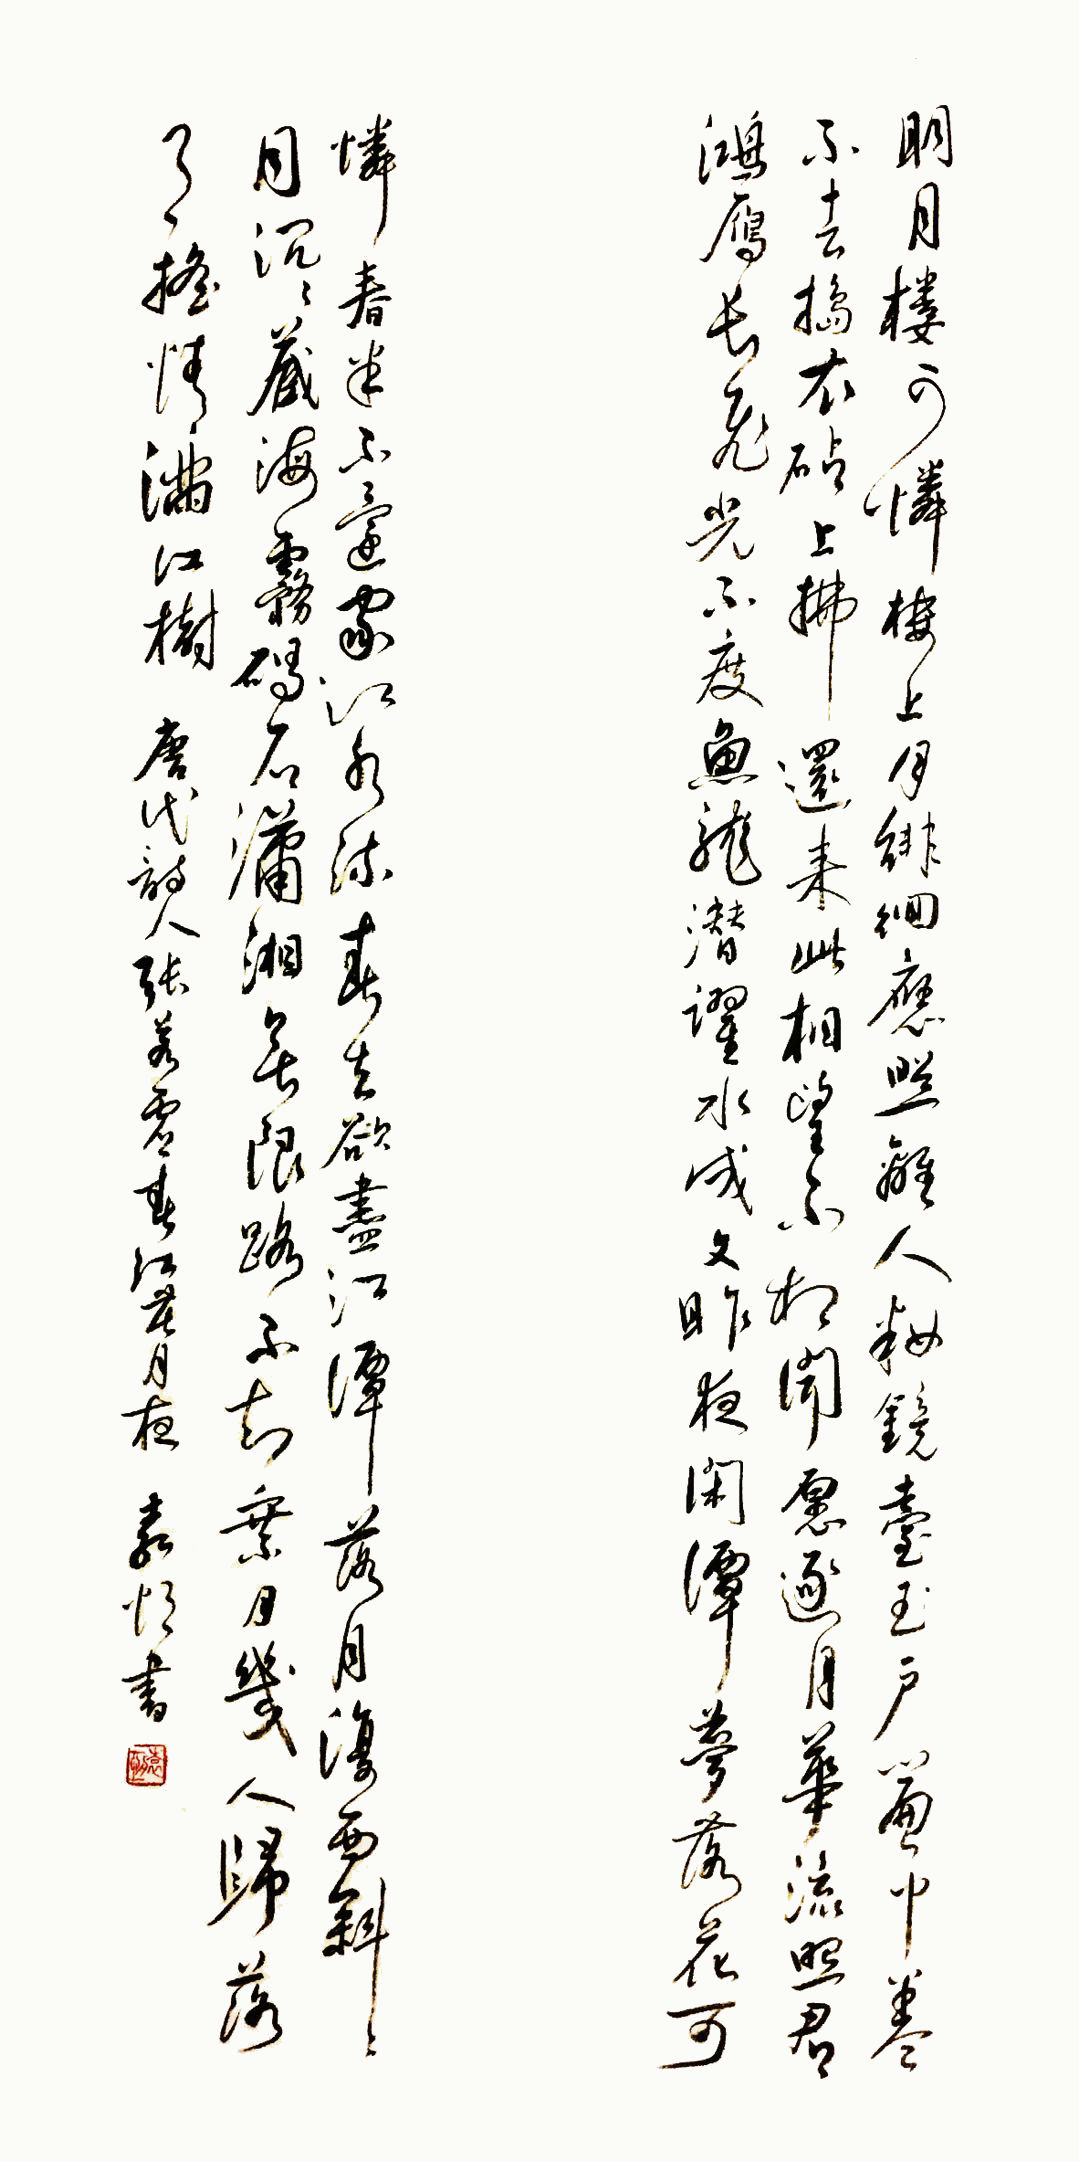 明月楼可憐楼上月徘徊應照離人粧鏡臺玉户簾中卷
不去搗衣砧上拂還来此相望不相聞愿逐月華流照君
鴻鴈长飛光不度魚龍潜躍水成文昨夜闲潭夢落花可
憐春半不還家江水流春去欲盡江潭落月復西斜々
月沉々藏海霧碣石瀟湘無限路不知乘月幾人歸落
月搖情滿江樹 唐代詩人張若虚春江花月夜 袁書